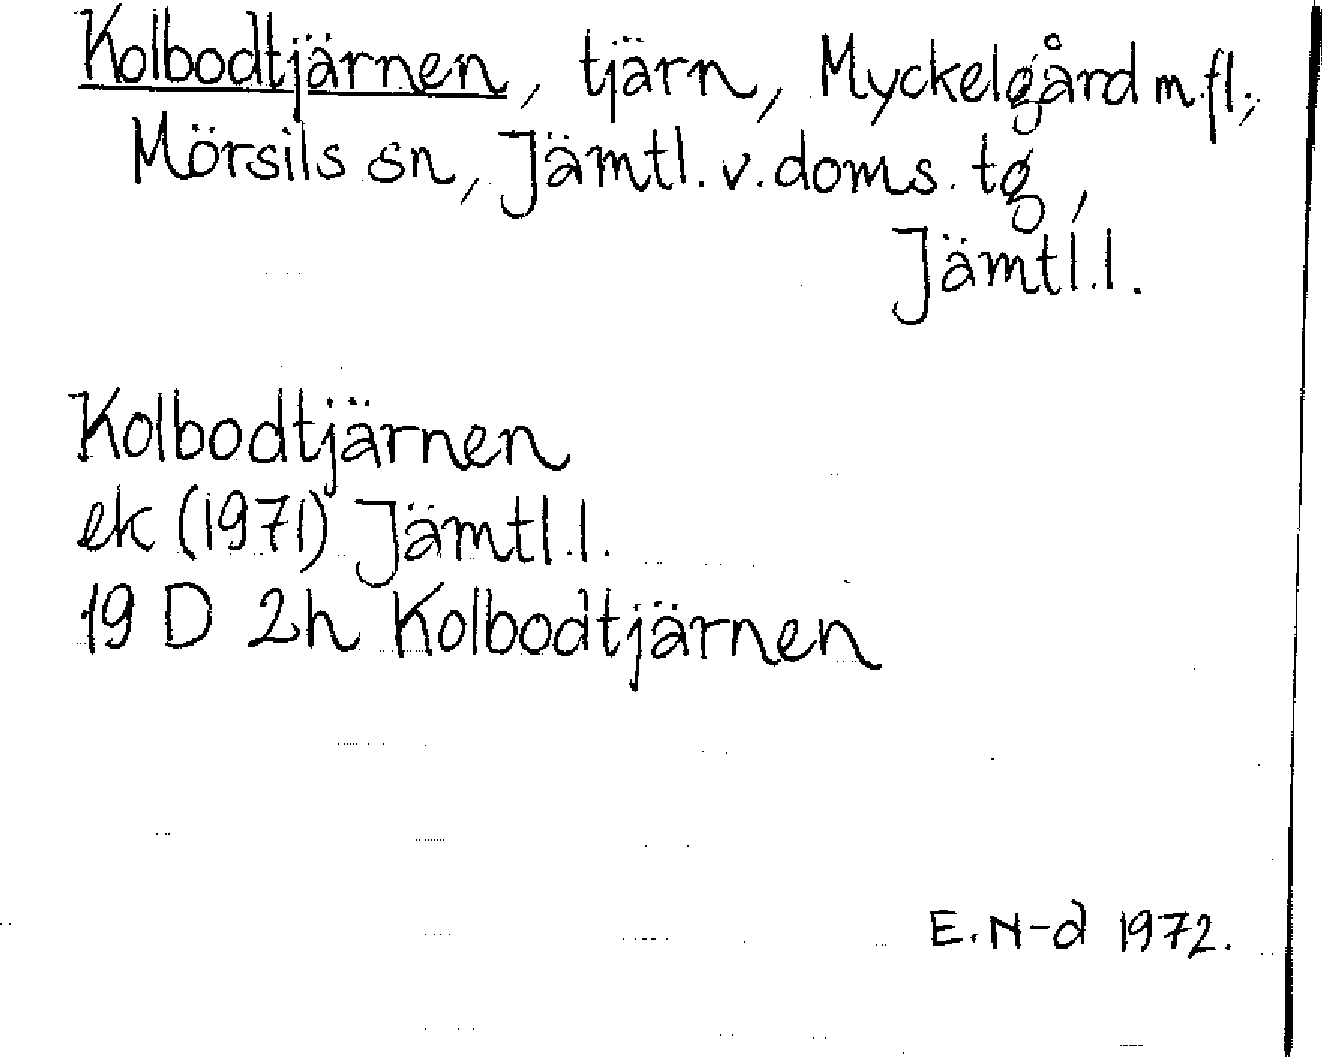 Kolbodtjärnen, tjärn, Myckelgård m.fl.,
Mörsils sn, Jämtl. v. doms. tg,
Jämtl.l.
Kolbodtjärnen
ek (1971) Jämtl.l.
19 D 2h Kolbodtjärnen
E. N-d 1972.